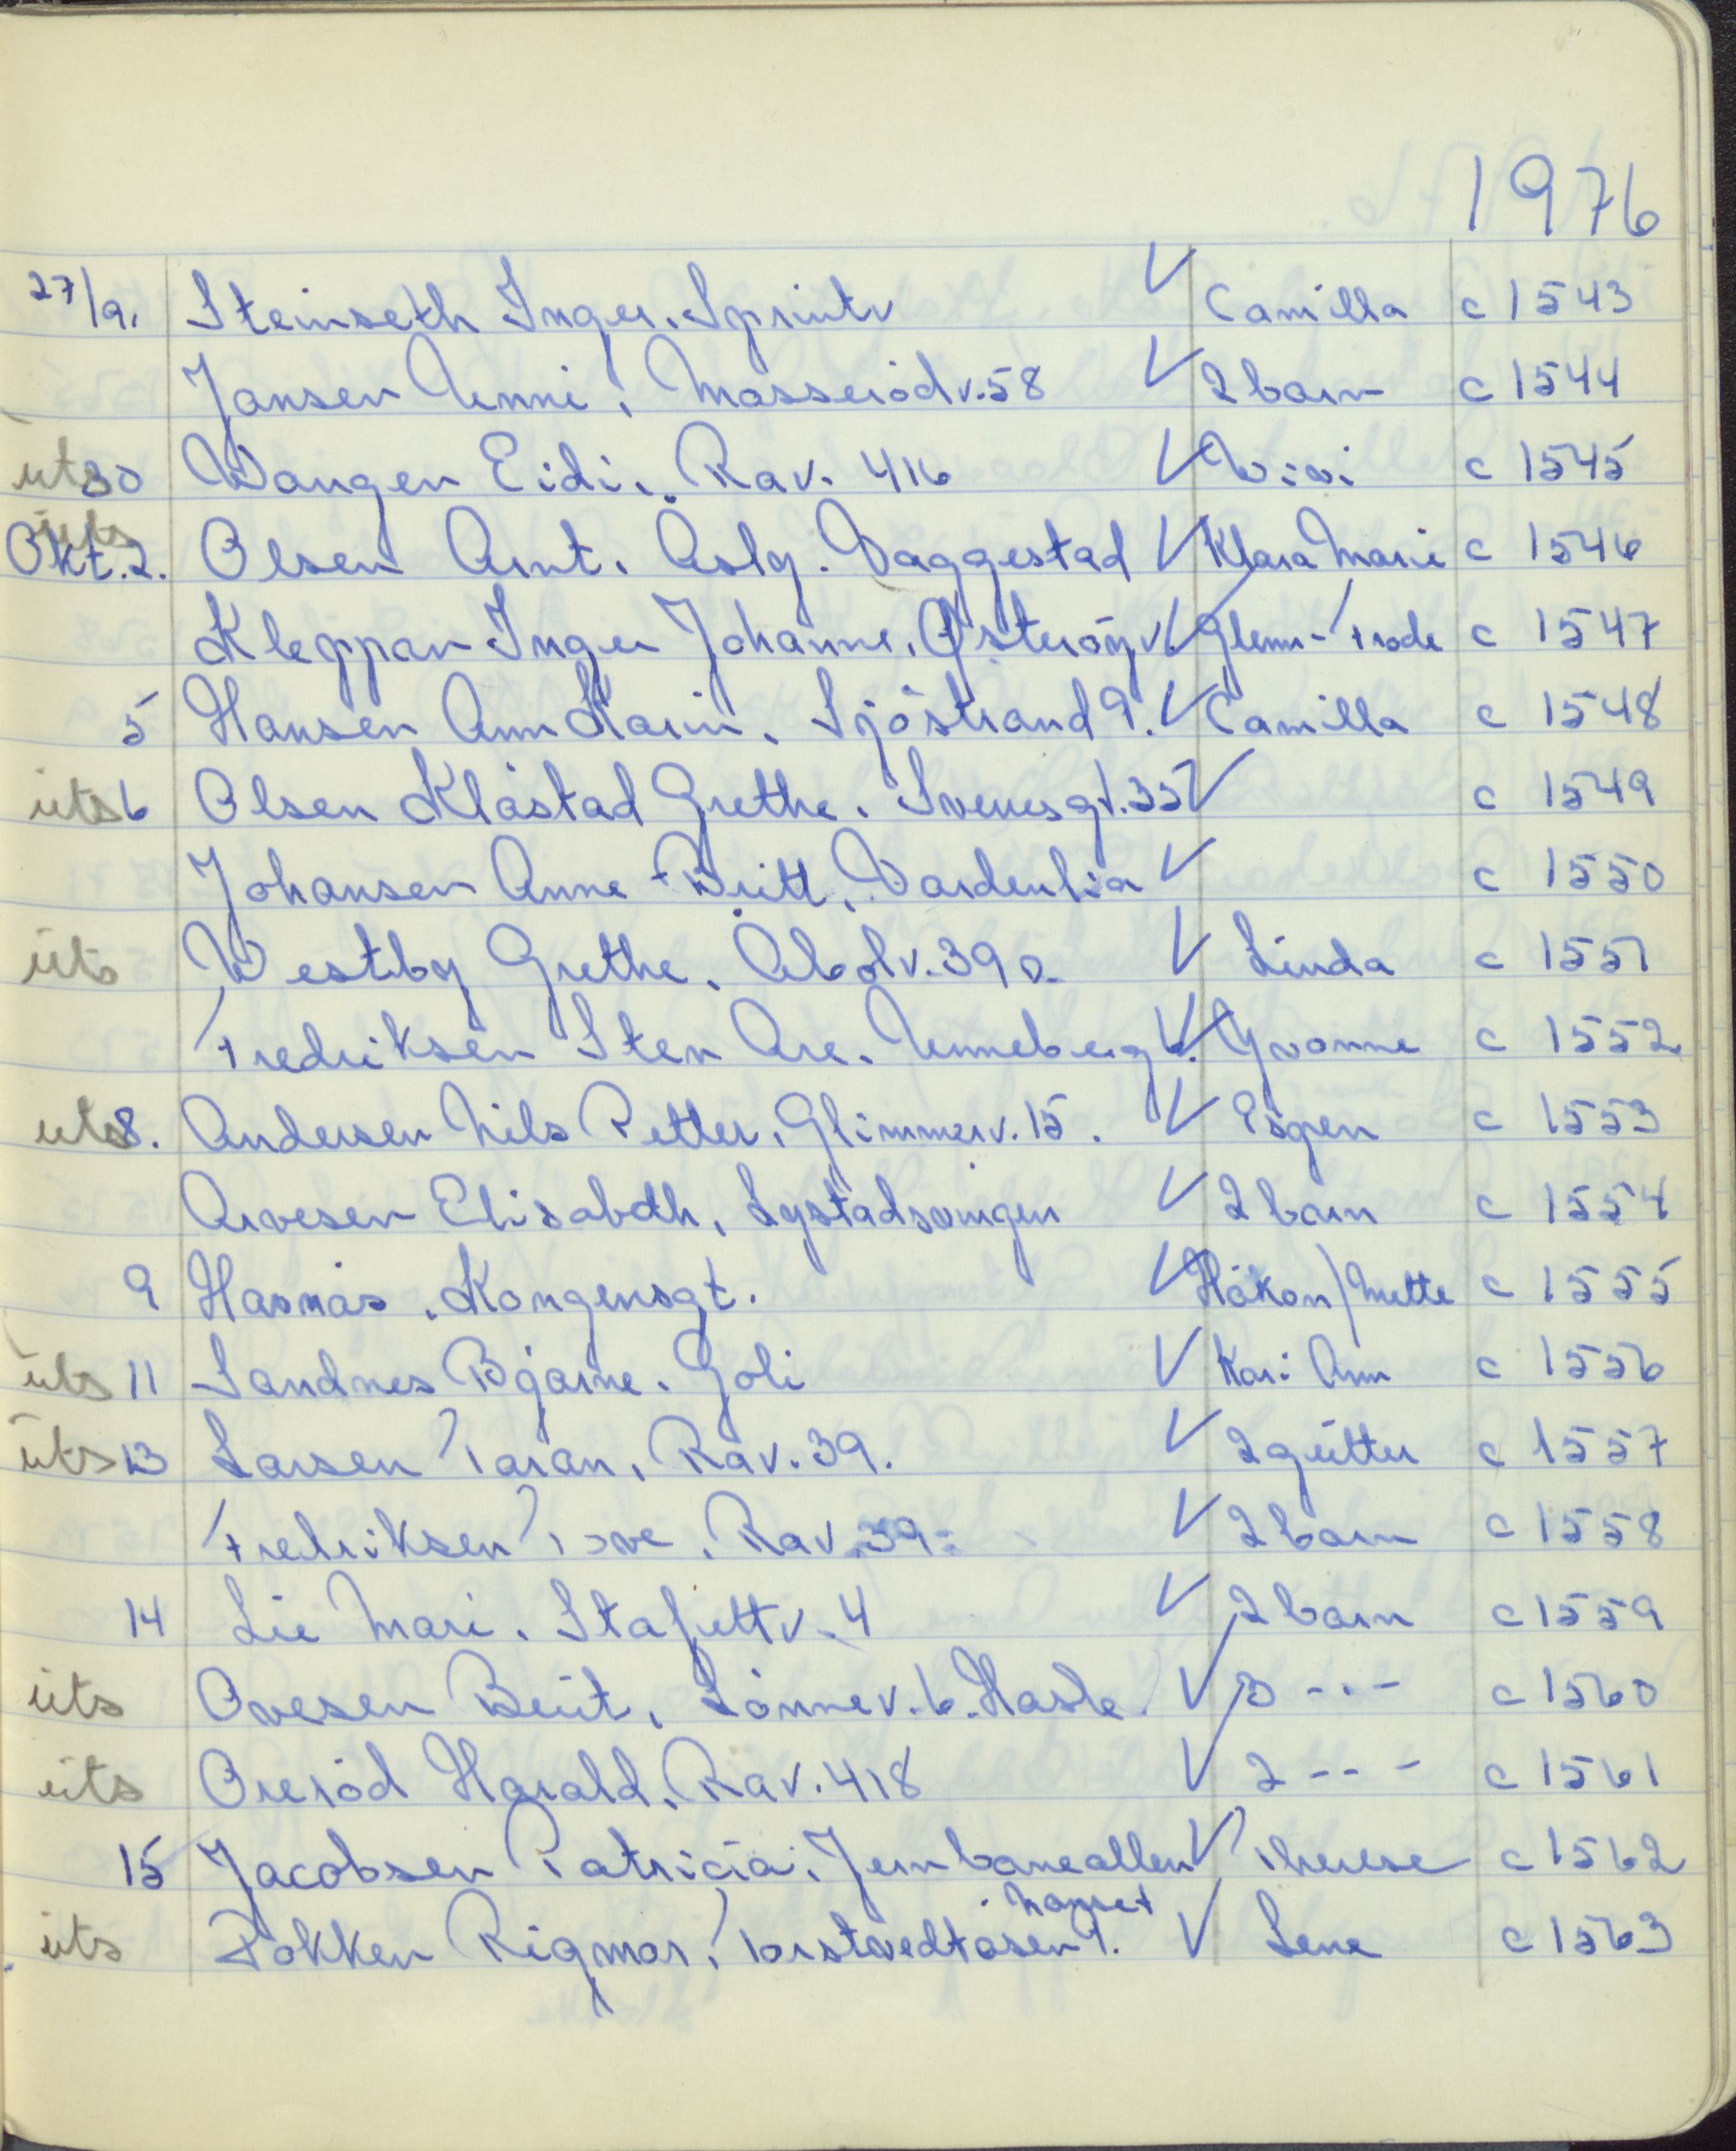 1976
27/9. Steinseth Inger. Sprintv V Camilla c 1543
Jansen Unni, Masserødv. 58 V 2 barn c 1544
uts 30 Wangen Eidi, Rav. 416 V Vivi c 1545
uts Okt. 2. Olsen Arnt. Åslg. Vaggestad V Klara Marie c 1546
Kleppan Inger Johanne, Østerøyv. V Glenn-Frode c 1547
5 Hansen Ann Karin. Sjøstrand 9. V Camilla c 1548
uts 6 Olsen Klåstad Grethe. Svenesgt. 35 V c 1549
Johansen Anne-Britt. Vardenlia V c 1550
uts Westby Grethe. V Linda c 1551
Fredriksen Sten Are. Unneberg V Yvonne c 1552
uts 8. Andersen Nils Petter. Glimmerv. 15. V Espen c 1553
Arvesen Elisabeth, Lystadsvingen V 2 barn c 1554
9 Havnås. Kongensgt. V Håkon/Mette c 1555
uts 11 Sandnes Bjarne. Goli V Kari Ann c 1556
uts 13 Larsen Taran, Rav. 39. V 2 gutter c 1557
Fredriksen Tove, Rav. 39. V 2 barn c 1558
14 Lie Mari. Stafettv. 4 V 2 barn c 1559
uts Ovesen Berit, Lønnev. 6. Hasle. V 3 --- c 1560
uts Orerød Harald. Rav. 418 V 2 --- c 1561
15 Jacobsen Patricia, Jernbanealleen V Therese c 1562
uts Fokken Rigmor, Torstvedtåsen 1. Nanset V Lene c 1563